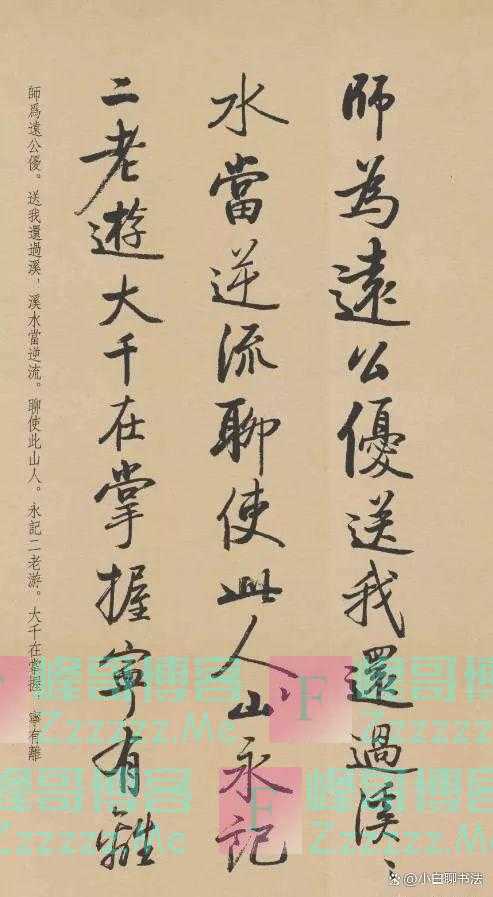 師為遠公優送我還過溪〻
水當逆流聊使此人山永記
二老遊大千在掌握寧有離
師爲遠公優。送我還過溪，溪水當逆流。聊使此山人。永記二老游。大千在掌握，寧有離
F
峰哥博客
Zzzzzz.Me
峰哥博客
Zzzzzz.Me
F
峰哥博客
Zzzzzz.Me
峰哥博客
Zzzzzz.Me
@小白聊书法